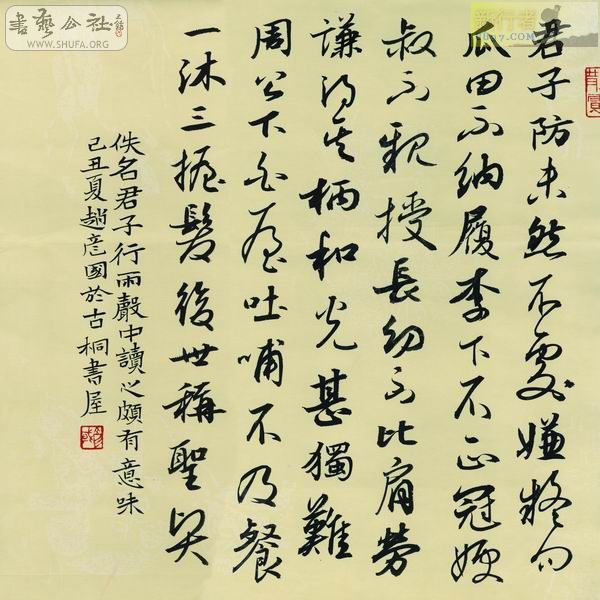 書藝公社
WWW.SHUFA.ORG
新行者
君子防未然不處嫌疑間
瓜田不納履李下不正冠嫂
叔不親授長幼不比肩勞
謙得其柄和光甚獨難
周公下白屋吐哺不及餐
一沐三握髮後世稱聖賢
佚名君子行雨聲中讀之頗有意味
己丑夏趙彦國於古桐書屋